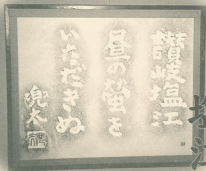 讃岐塩江
昼の蛍を
いただきぬ
兜太